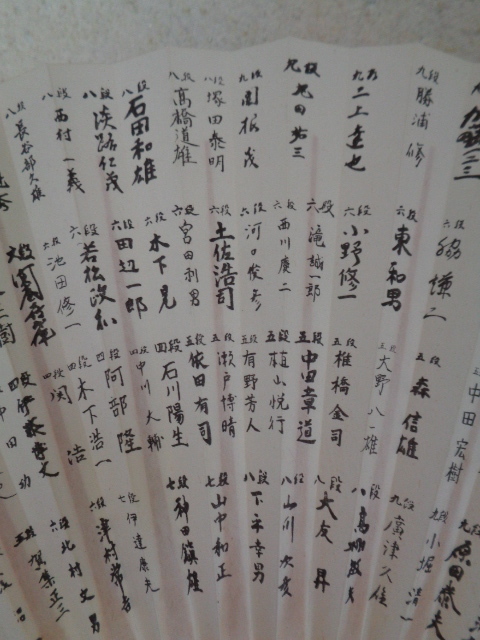 九段 勝浦 修
九段 二上達也
九段 丸田祐三
九段 関根 茂
八段 塚田泰明
八段 高橋道雄
八段 石田和雄
八段 淡路仁茂
八段 西村一義
八段 長谷部久雄
六段 脇 謙二
六段 東 和男
六段 小野修一
六段 滝 誠一郎
六段 西川慶二
六段 河口俊彦
六段 土佐浩司
六段 宮田利男
六段 木下 晃
六段 田辺一郎
六段 若松政和
六段 池田修一
五段 中田宏樹
五段 森 信雄
五段 大野八一雄
五段 椎橋金司
五段 中田章道
五段 植山悦行
五段 有野芳人
五段 瀬戸博晴
五段 依田有司
四段 石川陽生
四段 中川大輔
四段 阿部 隆
四段 木下浩一
四段 関 浩
四段 伊藤博文
中田 功
九段 原田泰夫
九段 小堀清一
九段 廣津久雄
八段 高柳敏夫
八段 大友 昇
八段 山川次彦
八段 下平幸男
七段 山中和正
七段 神田鎮雄
七段 伊達康夫
六段 津村常吉
六段 北村文男
五段 賀集正三